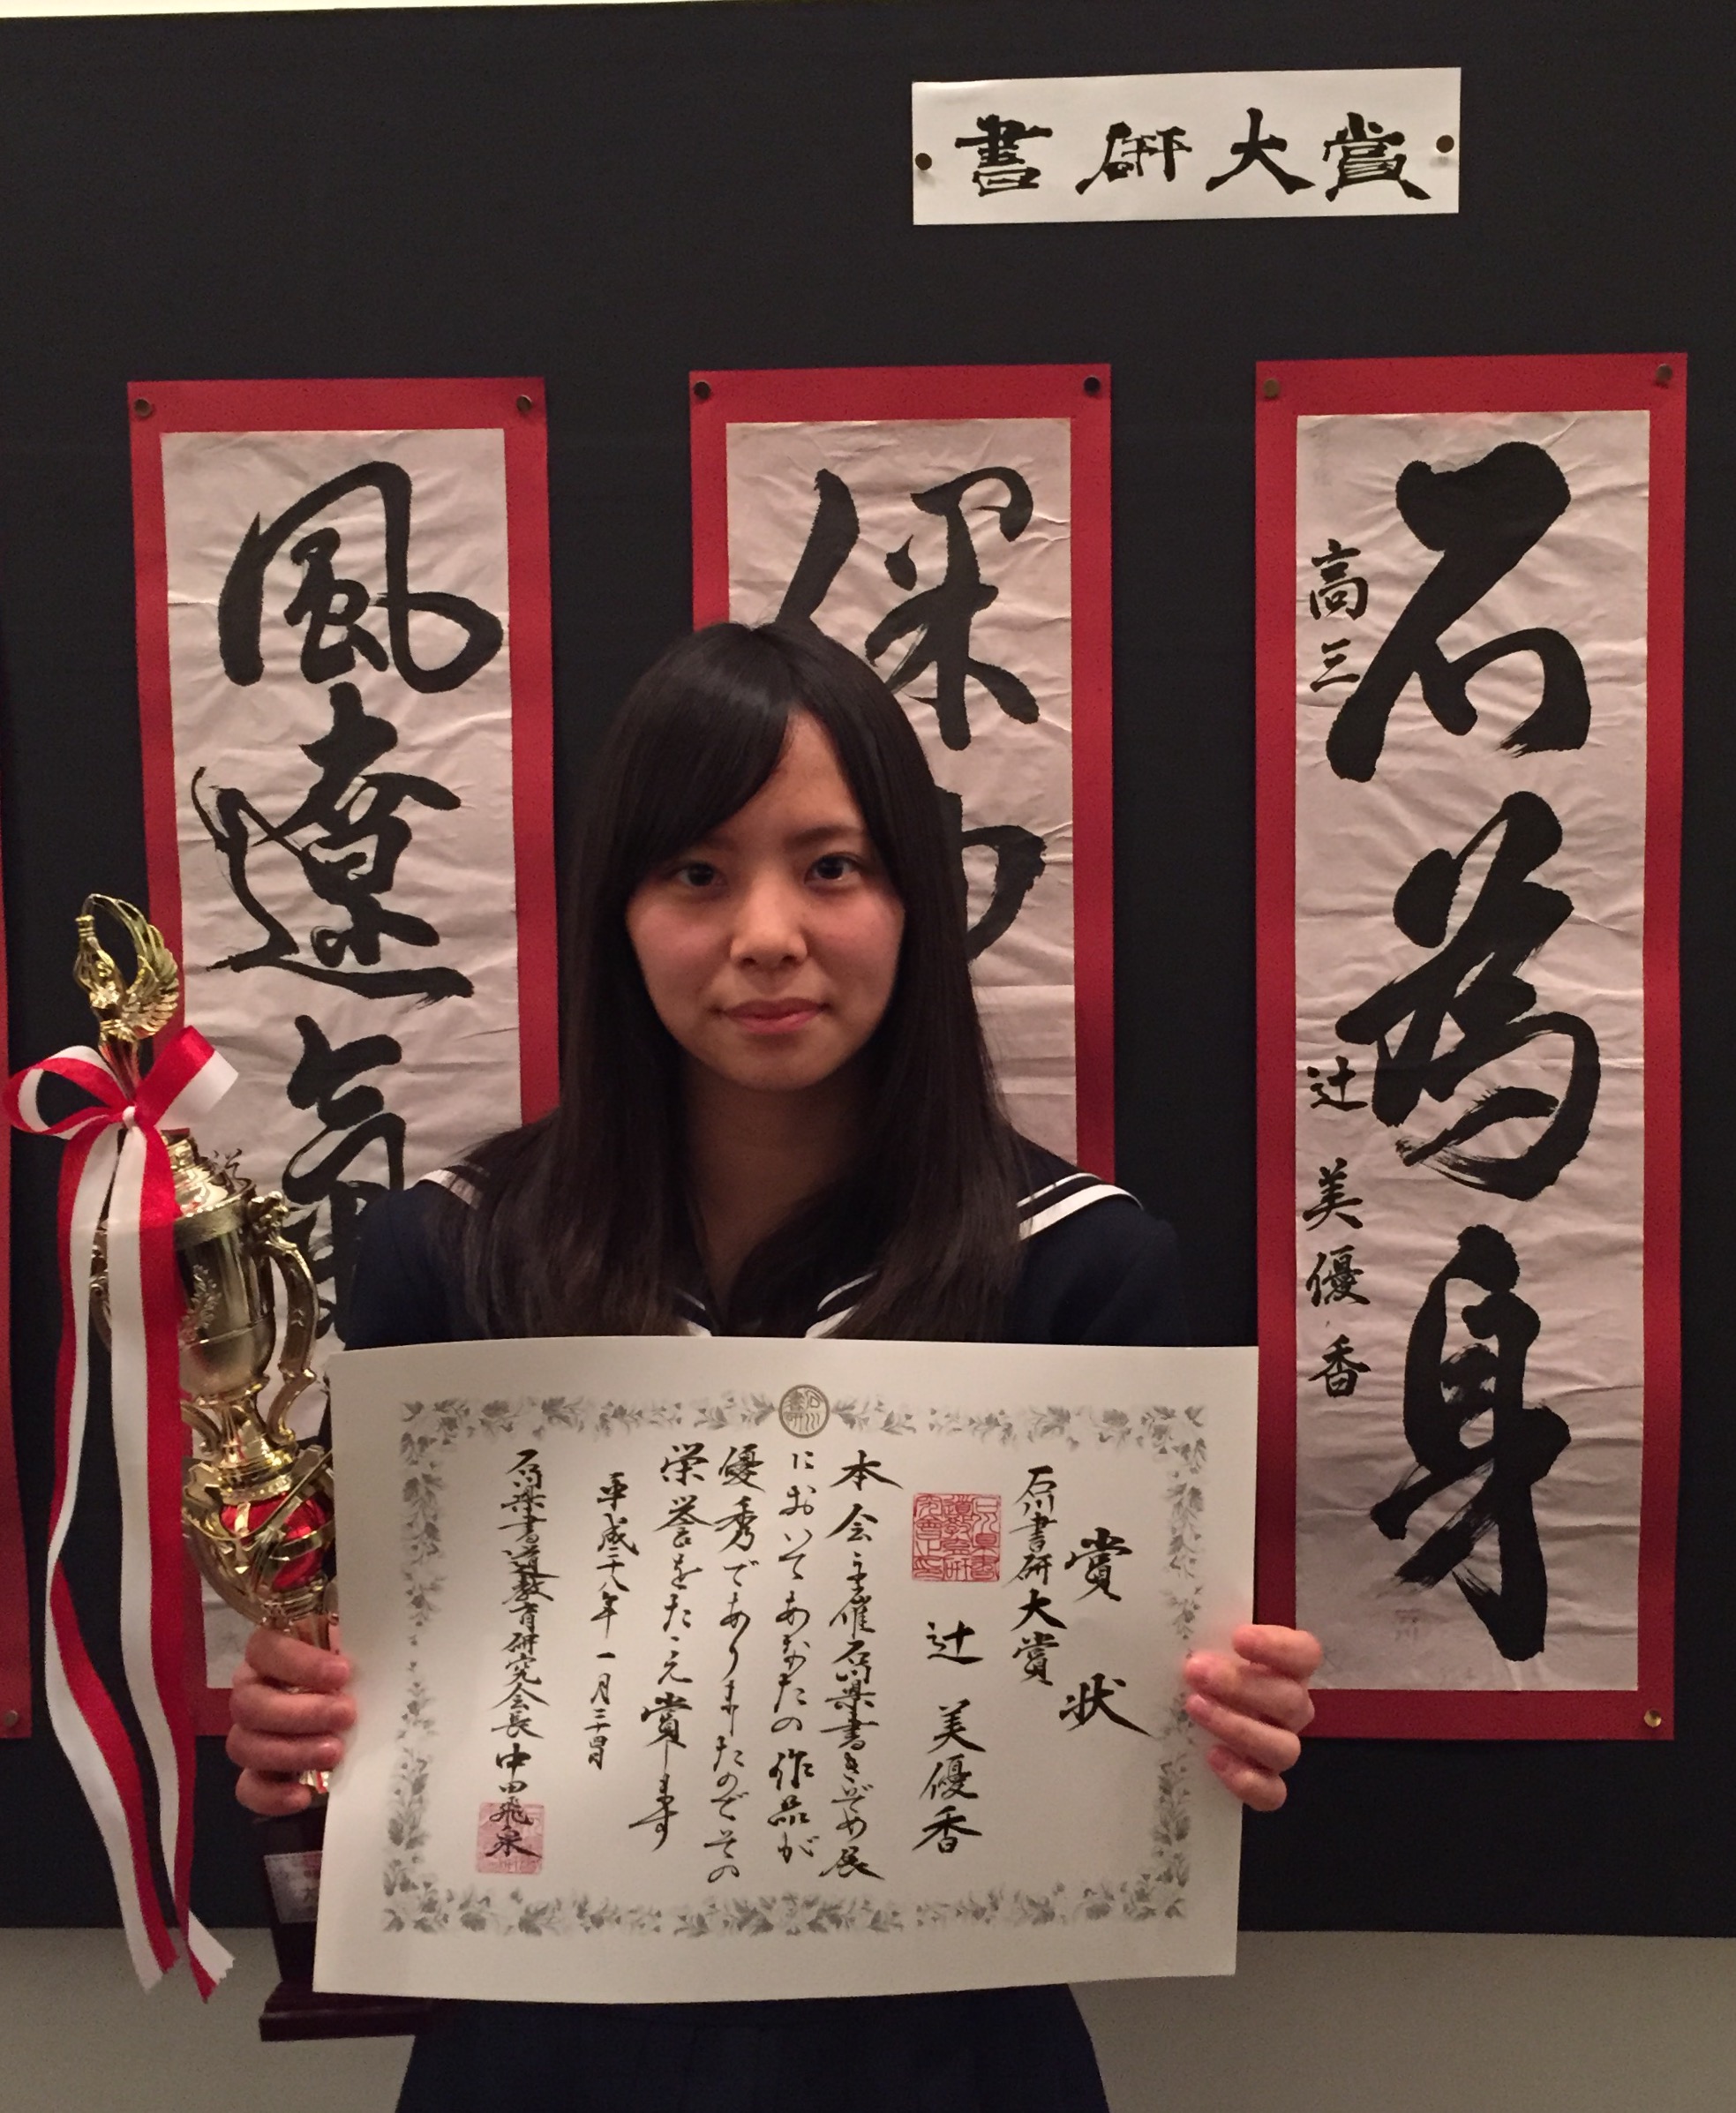 書研大賞
石為身
高三 辻 美優香
保
風遼氣
賞状
石川書研大賞
辻 美優香
本会主催石川県書きぞめ展
においてあなたの作品が
優秀でありましたのでその
栄誉をたたえ賞します
平成二十八年一月二十四日
石川県書道教育研究会長 中田飛泉